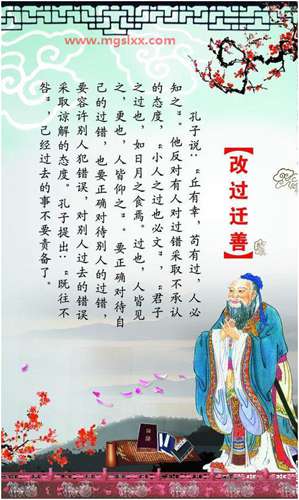 www.mgslxx.com
【改过迁善】
孔子说："丘有幸，苟有过，人必
知之"。他反对有人对过错采取不承认
的态度，"小人之过也必文"，"君子
之过也，如日月之食焉。过也，人皆见
之，更也，人皆仰之"。要正确对待自
己的过错，也要正确对待别人的过错，
要容许别人犯错误，对别人过去的错误
采取谅解的态度。孔子提出："既往不
咎"，己经过去的事不要责备了。